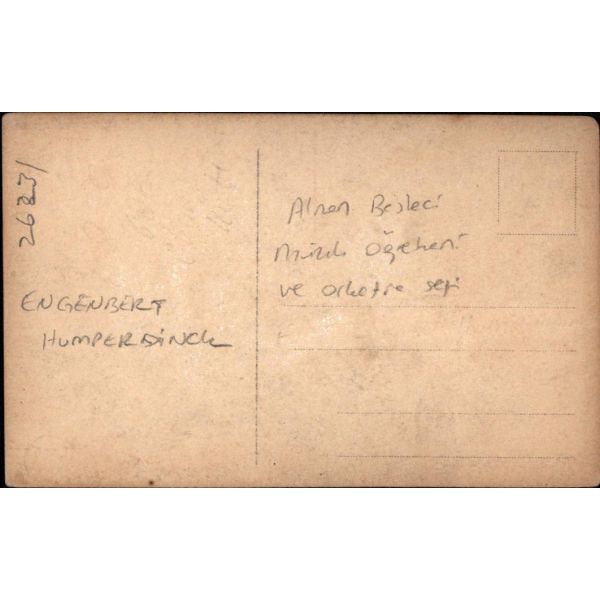 2623/
ENGENBERT
HUMPERDİNCK
Alman Besteci
Müzik Öğretmeni
ve orkestra şefi